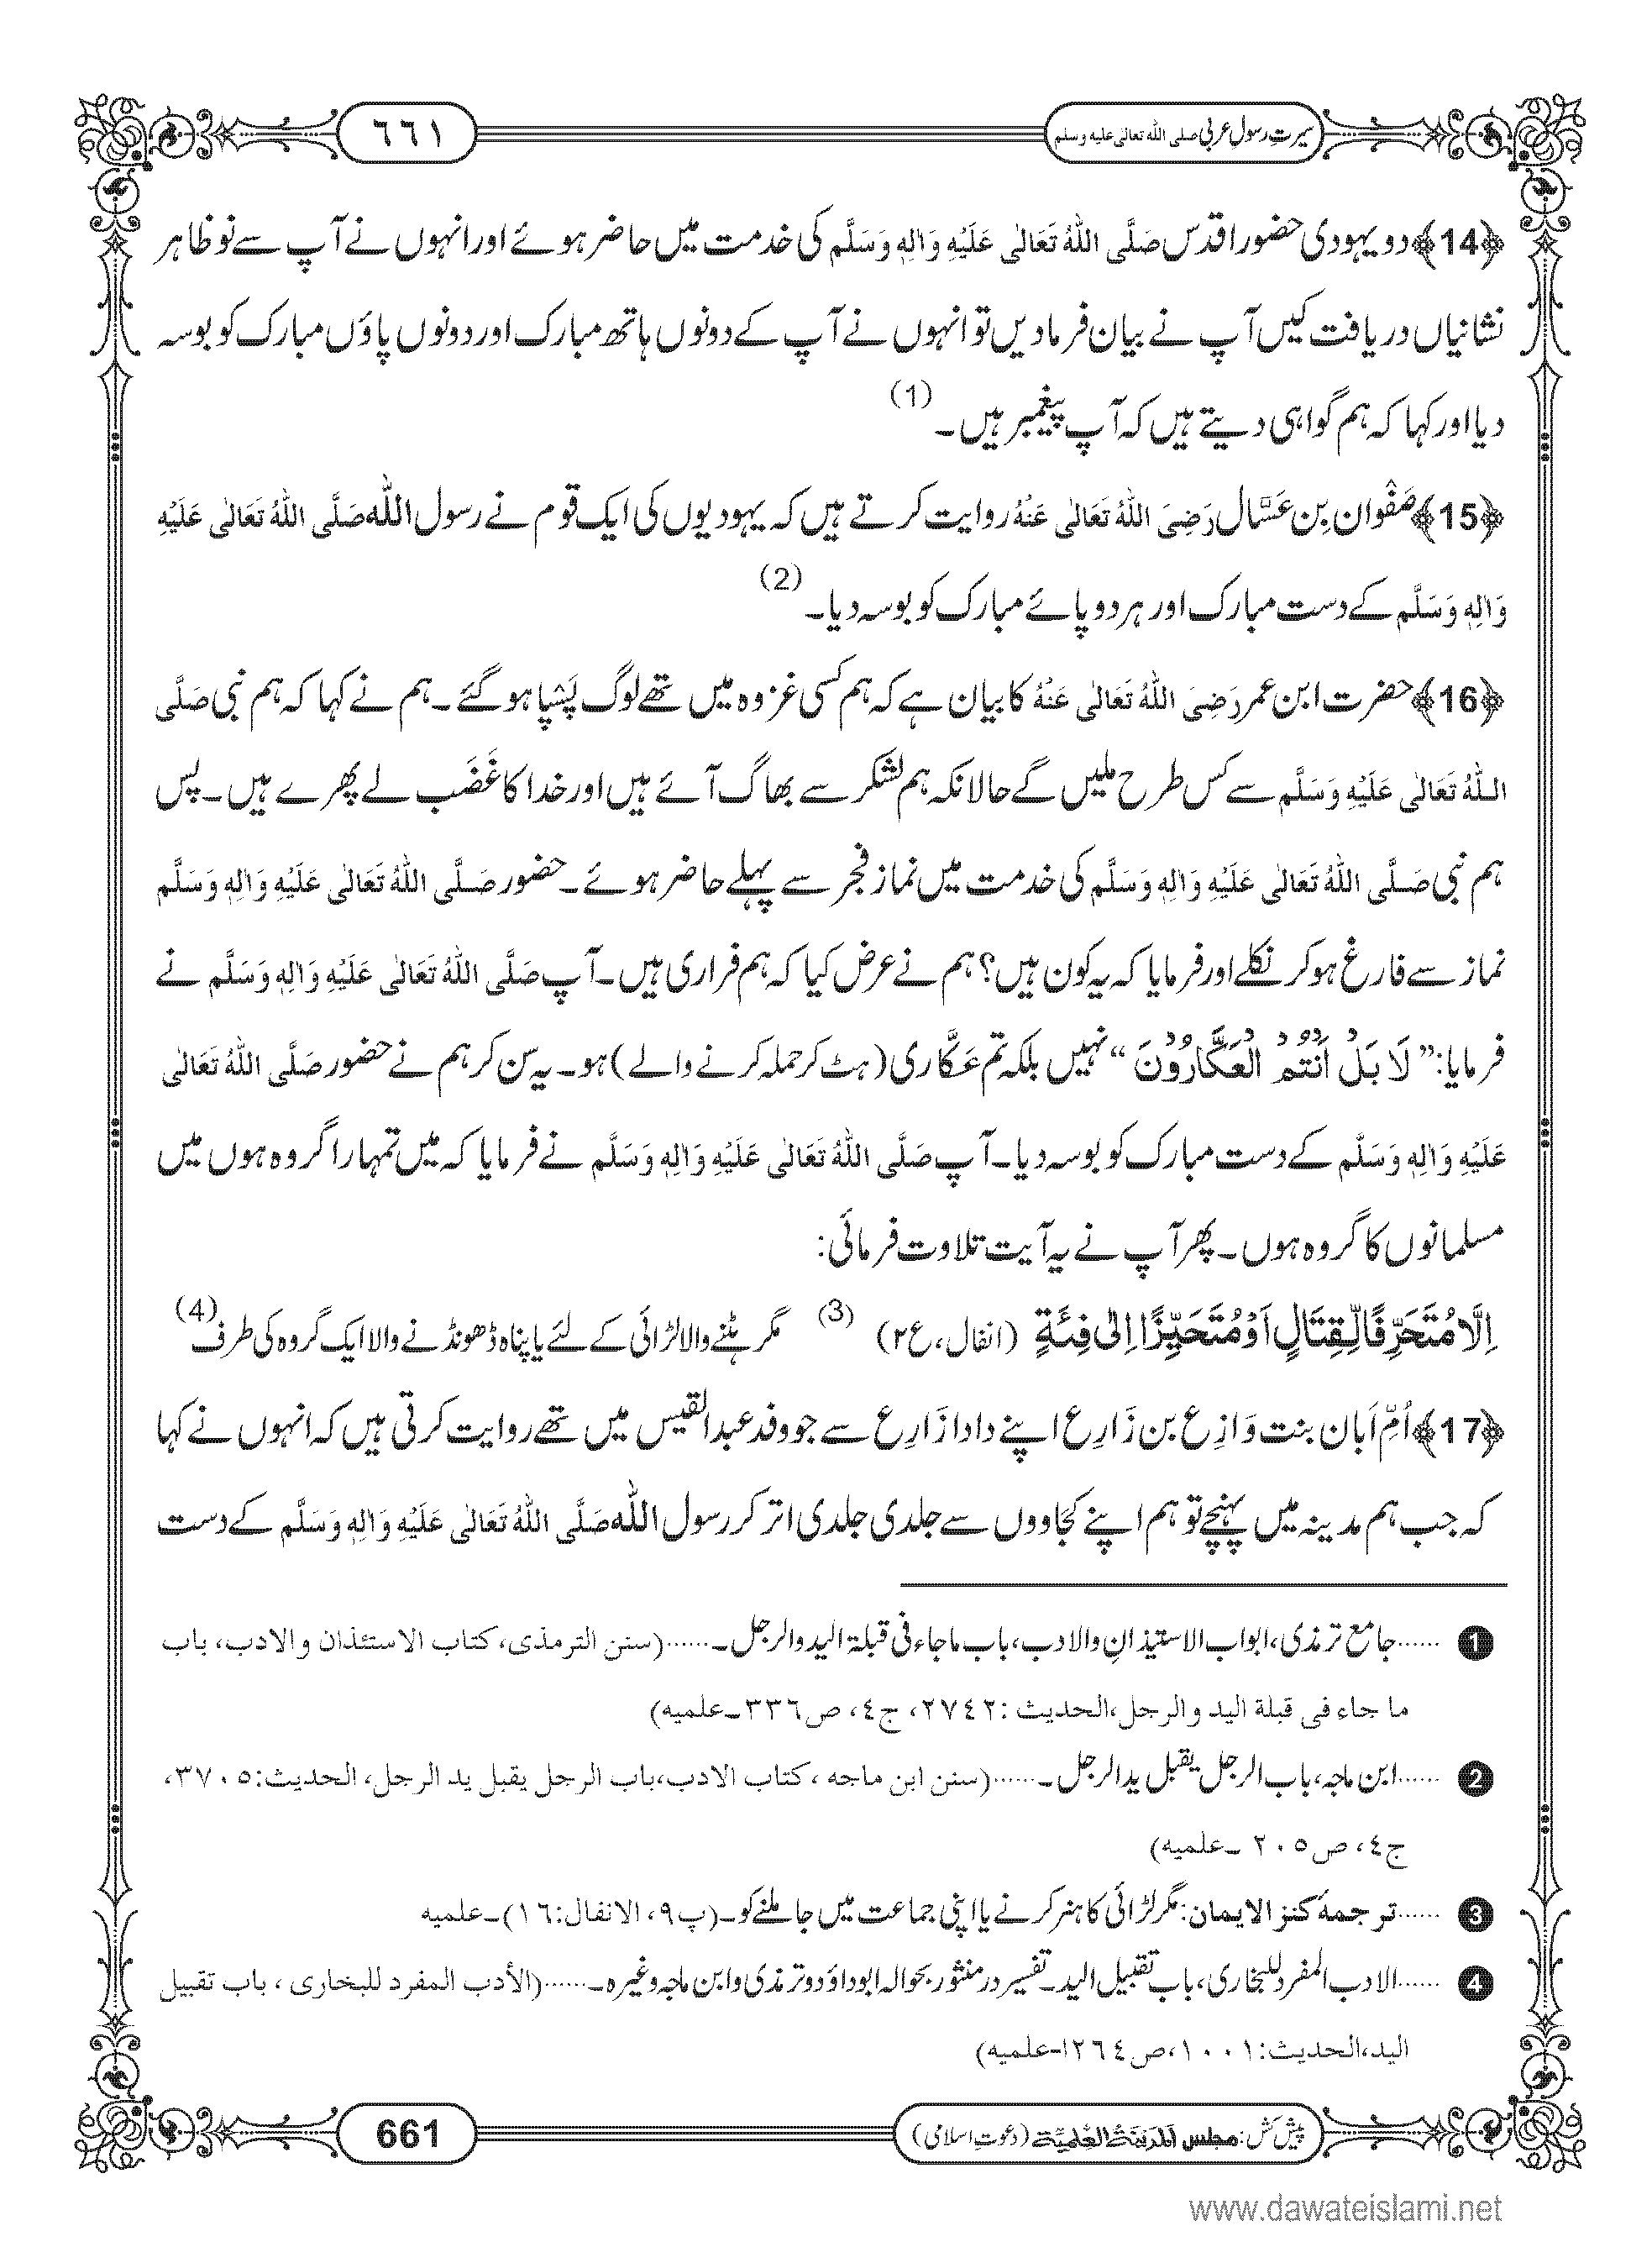 سیرتِ رسولِ عربی صلی اللہ تعالیٰ علیہ وسلم ٦٦١
﴿14﴾ دو یہودی حضور اقدس صَلَّی اللّٰہُ تَعَالٰی عَلَیْہِ وَاٰلِہٖ وَسَلَّم کی خدمت میں حاضر ہوئے اور انہوں نے آپ سے نو ظاہر
نشانیاں دریافت کیں آپ نے بیان فرمادیں تو انہوں نے آپ کے دونوں ہاتھ مبارک اور دونوں پاؤں مبارک کو بوسہ
دیا اور کہا کہ ہم گواہی دیتے ہیں کہ آپ پیغمبر ہیں۔ (1)
﴿15﴾ صَفْوان بِن عَسَّال رَضِیَ اللّٰہُ تَعَالٰی عَنْہُ روایت کرتے ہیں کہ یہودیوں کی ایک قوم نے رسول اللّٰہ صَلَّی اللّٰہُ تَعَالٰی عَلَیْہِ
وَاٰلِہٖ وَسَلَّم کے دست مبارک اور ہر دو پائے مبارک کو بوسہ دیا۔ (2)
﴿16﴾ حضرت ابن عمر رَضِیَ اللّٰہُ تَعَالٰی عَنْہُ کا بیان ہے کہ ہم کسی غزوہ میں تھے لوگ پَسْپا ہوگئے۔ ہم نے کہا کہ ہم نبی صَلَّی
اللّٰہُ تَعَالٰی عَلَیْہِ وَسَلَّم سے کس طرح ملیں گے حالانکہ ہم لشکر سے بھاگ آئے ہیں اور خدا کا غَضَب لے پھرے ہیں۔ پس
ہم نبی صَلَّی اللّٰہُ تَعَالٰی عَلَیْہِ وَاٰلِہٖ وَسَلَّم کی خدمت میں نماز فجر سے پہلے حاضر ہوئے۔ حضور صَلَّی اللّٰہُ تَعَالٰی عَلَیْہِ وَاٰلِہٖ وَسَلَّم
نماز سے فارغ ہوکر نکلے اور فرمایا کہ یہ کون ہیں؟ ہم نے عرض کیا کہ ہم فراری ہیں۔ آپ صَلَّی اللّٰہُ تَعَالٰی عَلَیْہِ وَاٰلِہٖ وَسَلَّم نے
فرمایا: ”لَا بَلْ اَنْتُمُ الْعَکَّارُوْنَ“ نہیں بلکہ تم عَکَّاری (ہٹ کر حملہ کرنے والے) ہو۔ یہ سن کر ہم نے حضور صَلَّی اللّٰہُ تَعَالٰی
عَلَیْہِ وَاٰلِہٖ وَسَلَّم کے دست مبارک کو بوسہ دیا۔ آپ صَلَّی اللّٰہُ تَعَالٰی عَلَیْہِ وَاٰلِہٖ وَسَلَّم نے فرمایا کہ میں تمہارا گروہ ہوں میں
مسلمانوں کا گروہ ہوں۔ پھر آپ نے یہ آیت تلاوت فرمائی:
اِلَّا مُتَحَرِّفًا لِّقِتَالٍ اَوْ مُتَحَیِّزًا اِلٰی فِئَۃٍ (انفال، ع٢) (3) مگر ہٹنے والا لڑائی کے لئے یا پناہ ڈھونڈنے والا ایک گروہ کی طرف (4)
﴿17﴾ اُمِّ اَبان بنت وَازِع بن زَارِع اپنے دادا زَارِع سے جو وفد عبدالقیس میں تھے روایت کرتی ہیں کہ انہوں نے کہا
کہ جب ہم مدینہ میں پہنچے تو ہم اپنے کجاووں سے جلدی جلدی اتر کر رسول اللّٰہ صَلَّی اللّٰہُ تَعَالٰی عَلَیْہِ وَاٰلِہٖ وَسَلَّم کے دست
❶ ......جامع ترمذی، ابواب الاستیذان والادب، باب ماجاء فی قبلۃ الید والرجل۔......(سنن الترمذی، کتاب الاستئذان والادب، باب
ما جاء فی قبلة الید والرجل، الحدیث: ٢٧٤٢، ج٤، ص٣٣٦۔علمیه)
❷ ......ابن ماجہ، باب الرجل یقبل ید الرجل۔......(سنن ابن ماجه، کتاب الادب، باب الرجل یقبل ید الرجل، الحدیث: ٣٧٠٥،
ج٤، ص٢٠٥ ۔علمیه)
❸ ......ترجمۂ کنز الایمان: مگر لڑائی کا ہنر کرنے یا اپنی جماعت میں جا ملنے کو۔ (پ٩، الانفال: ١٦)۔علمیه
❹ ......الادب المفرد للبخاری، باب تقبیل الید۔ تفسیر درمنثور بحوالہ ابوداؤد و ترمذی وابن ماجہ وغیرہ۔......(الأدب المفرد للبخاری، باب تقبیل
الید، الحدیث: ١٠٠١، ص٢٦٤۔علمیه)
661 پیش کش: مجلس اَلْمَدِیْنَۃُ الْعِلْمِیَّۃ (دعوتِ اسلامی)
www.dawateislami.net